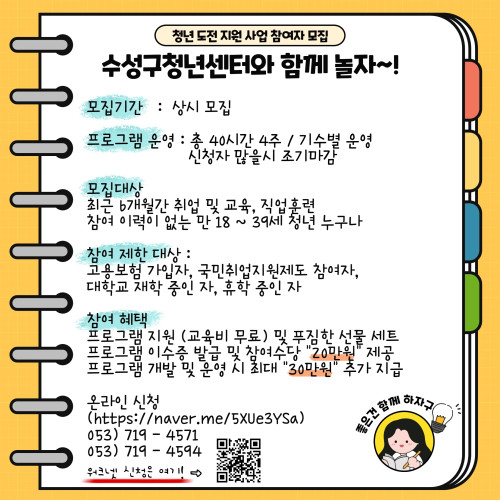 청년 도전 지원 사업 참여자 모집
수성구청년센터와 함께 놀자~!
모집기간 : 상시 모집
프로그램 운영 : 총 40시간 4주 / 기수별 운영
신청자 많을시 조기마감
모집대상
최근 6개월간 취업 및 교육, 직업훈련
참여 이력이 없는 만 18 ~ 39세 청년 누구나
참여 제한 대상 :
고용보험 가입자, 국민취업지원제도 참여자,
대학교 재학 중인 자, 휴학 중인 자
참여 혜택
프로그램 지원 (교육비 무료) 및 푸짐한 선물 세트
프로그램 이수증 발급 및 참여수당 "20만원" 제공
프로그램 개발 및 운영 시 최대 "30만원" 추가 지급
온라인 신청
(https://naver.me/5XUe3YSa)
053) 719 - 4571
053) 719 - 4594
워크넷 신청은 여기! ⇨
좋은건 함께 하자구